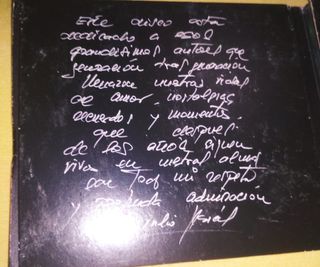 Este disco está
dedicado a esos
grandísimos autores que
generación tras generación
llenaron nuestras vidas
de amor, nostalgias,
recuerdos y momentos
que después
de los años siguen
vivos en nuestras almas
con todo mi respeto
y profunda admiración